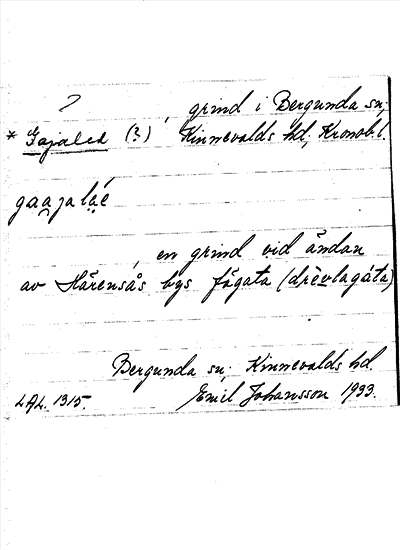 ?
, grind i Bergunda sn,
* Gajaled (?) Kinnevalds hd, Kronob.l.
gaajalée
, en grind vid ändan
av Härensås bys fägata (drèvlagáta)
Bergunda sn, Kinnevalds hd.
LAL. 1315. Emil Johansson 1933.